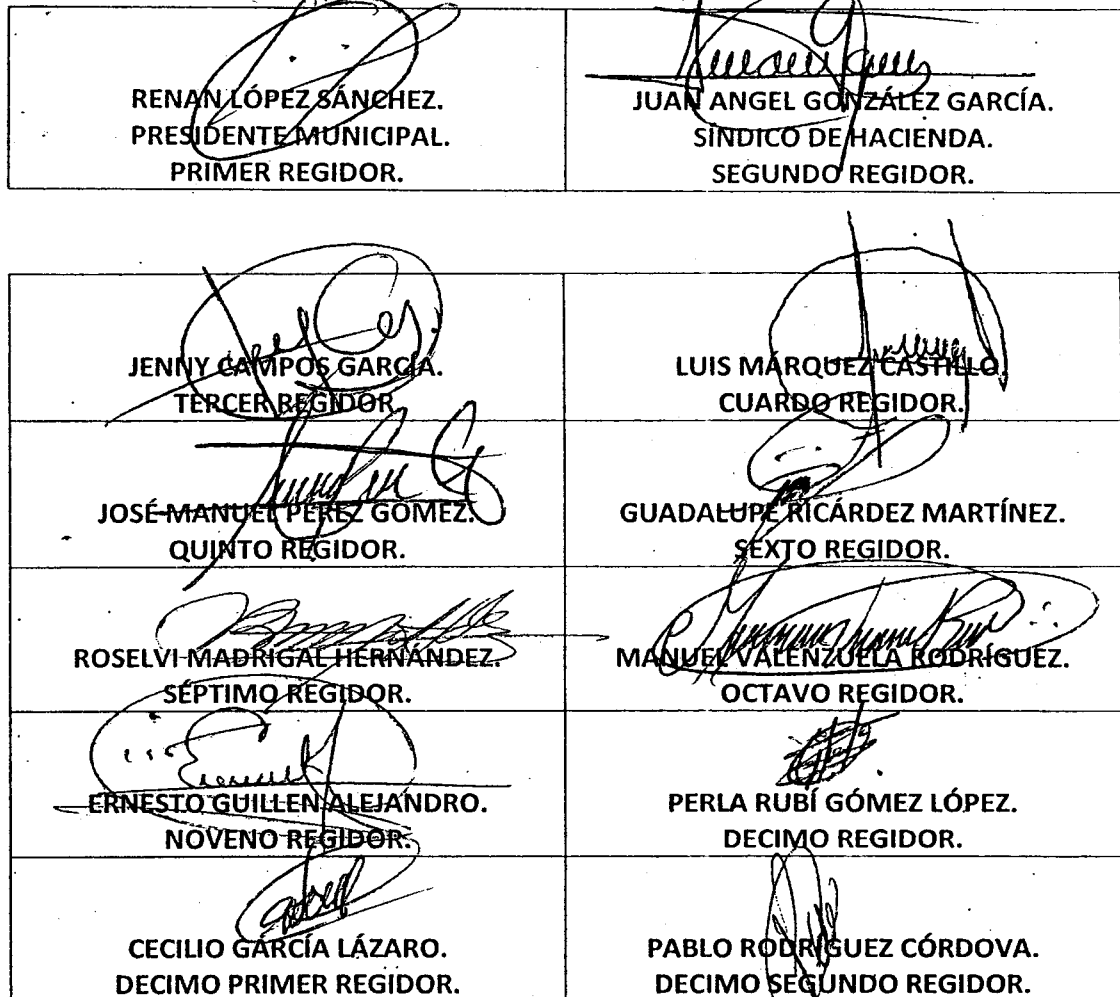 RENAN LÓPEZ SÁNCHEZ.
PRESIDENTE MUNICIPAL.
PRIMER REGIDOR.
JUAN ANGEL GONZÁLEZ GARCÍA.
SÍNDICO DE HACIENDA.
SEGUNDO REGIDOR.
JENNY CAMPOS GARCÍA.
TERCER REGIDOR
LUIS MÁRQUEZ CASTILLO.
CUARDO REGIDOR.
JOSÉ MANUEL PÉREZ GÓMEZ.
QUINTO REGIDOR.
GUADALUPE RICÁRDEZ MARTÍNEZ.
SEXTO REGIDOR.
ROSELVI MADRIGAL HERNÁNDEZ.
SÉPTIMO REGIDOR.
MANUEL VALENZUELA RODRÍGUEZ.
OCTAVO REGIDOR.
ERNESTO GUILLEN ALEJANDRO.
NOVENO REGIDOR.
PERLA RUBÍ GÓMEZ LÓPEZ.
DECIMO REGIDOR.
CECILIO GARCÍA LÁZARO.
DECIMO PRIMER REGIDOR.
PABLO RODRÍGUEZ CÓRDOVA.
DECIMO SEGUNDO REGIDOR.